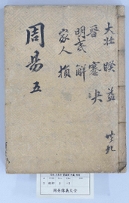 大壯 睽 益
晉 蹇 夬
明夷 解
家人 損
周易 五